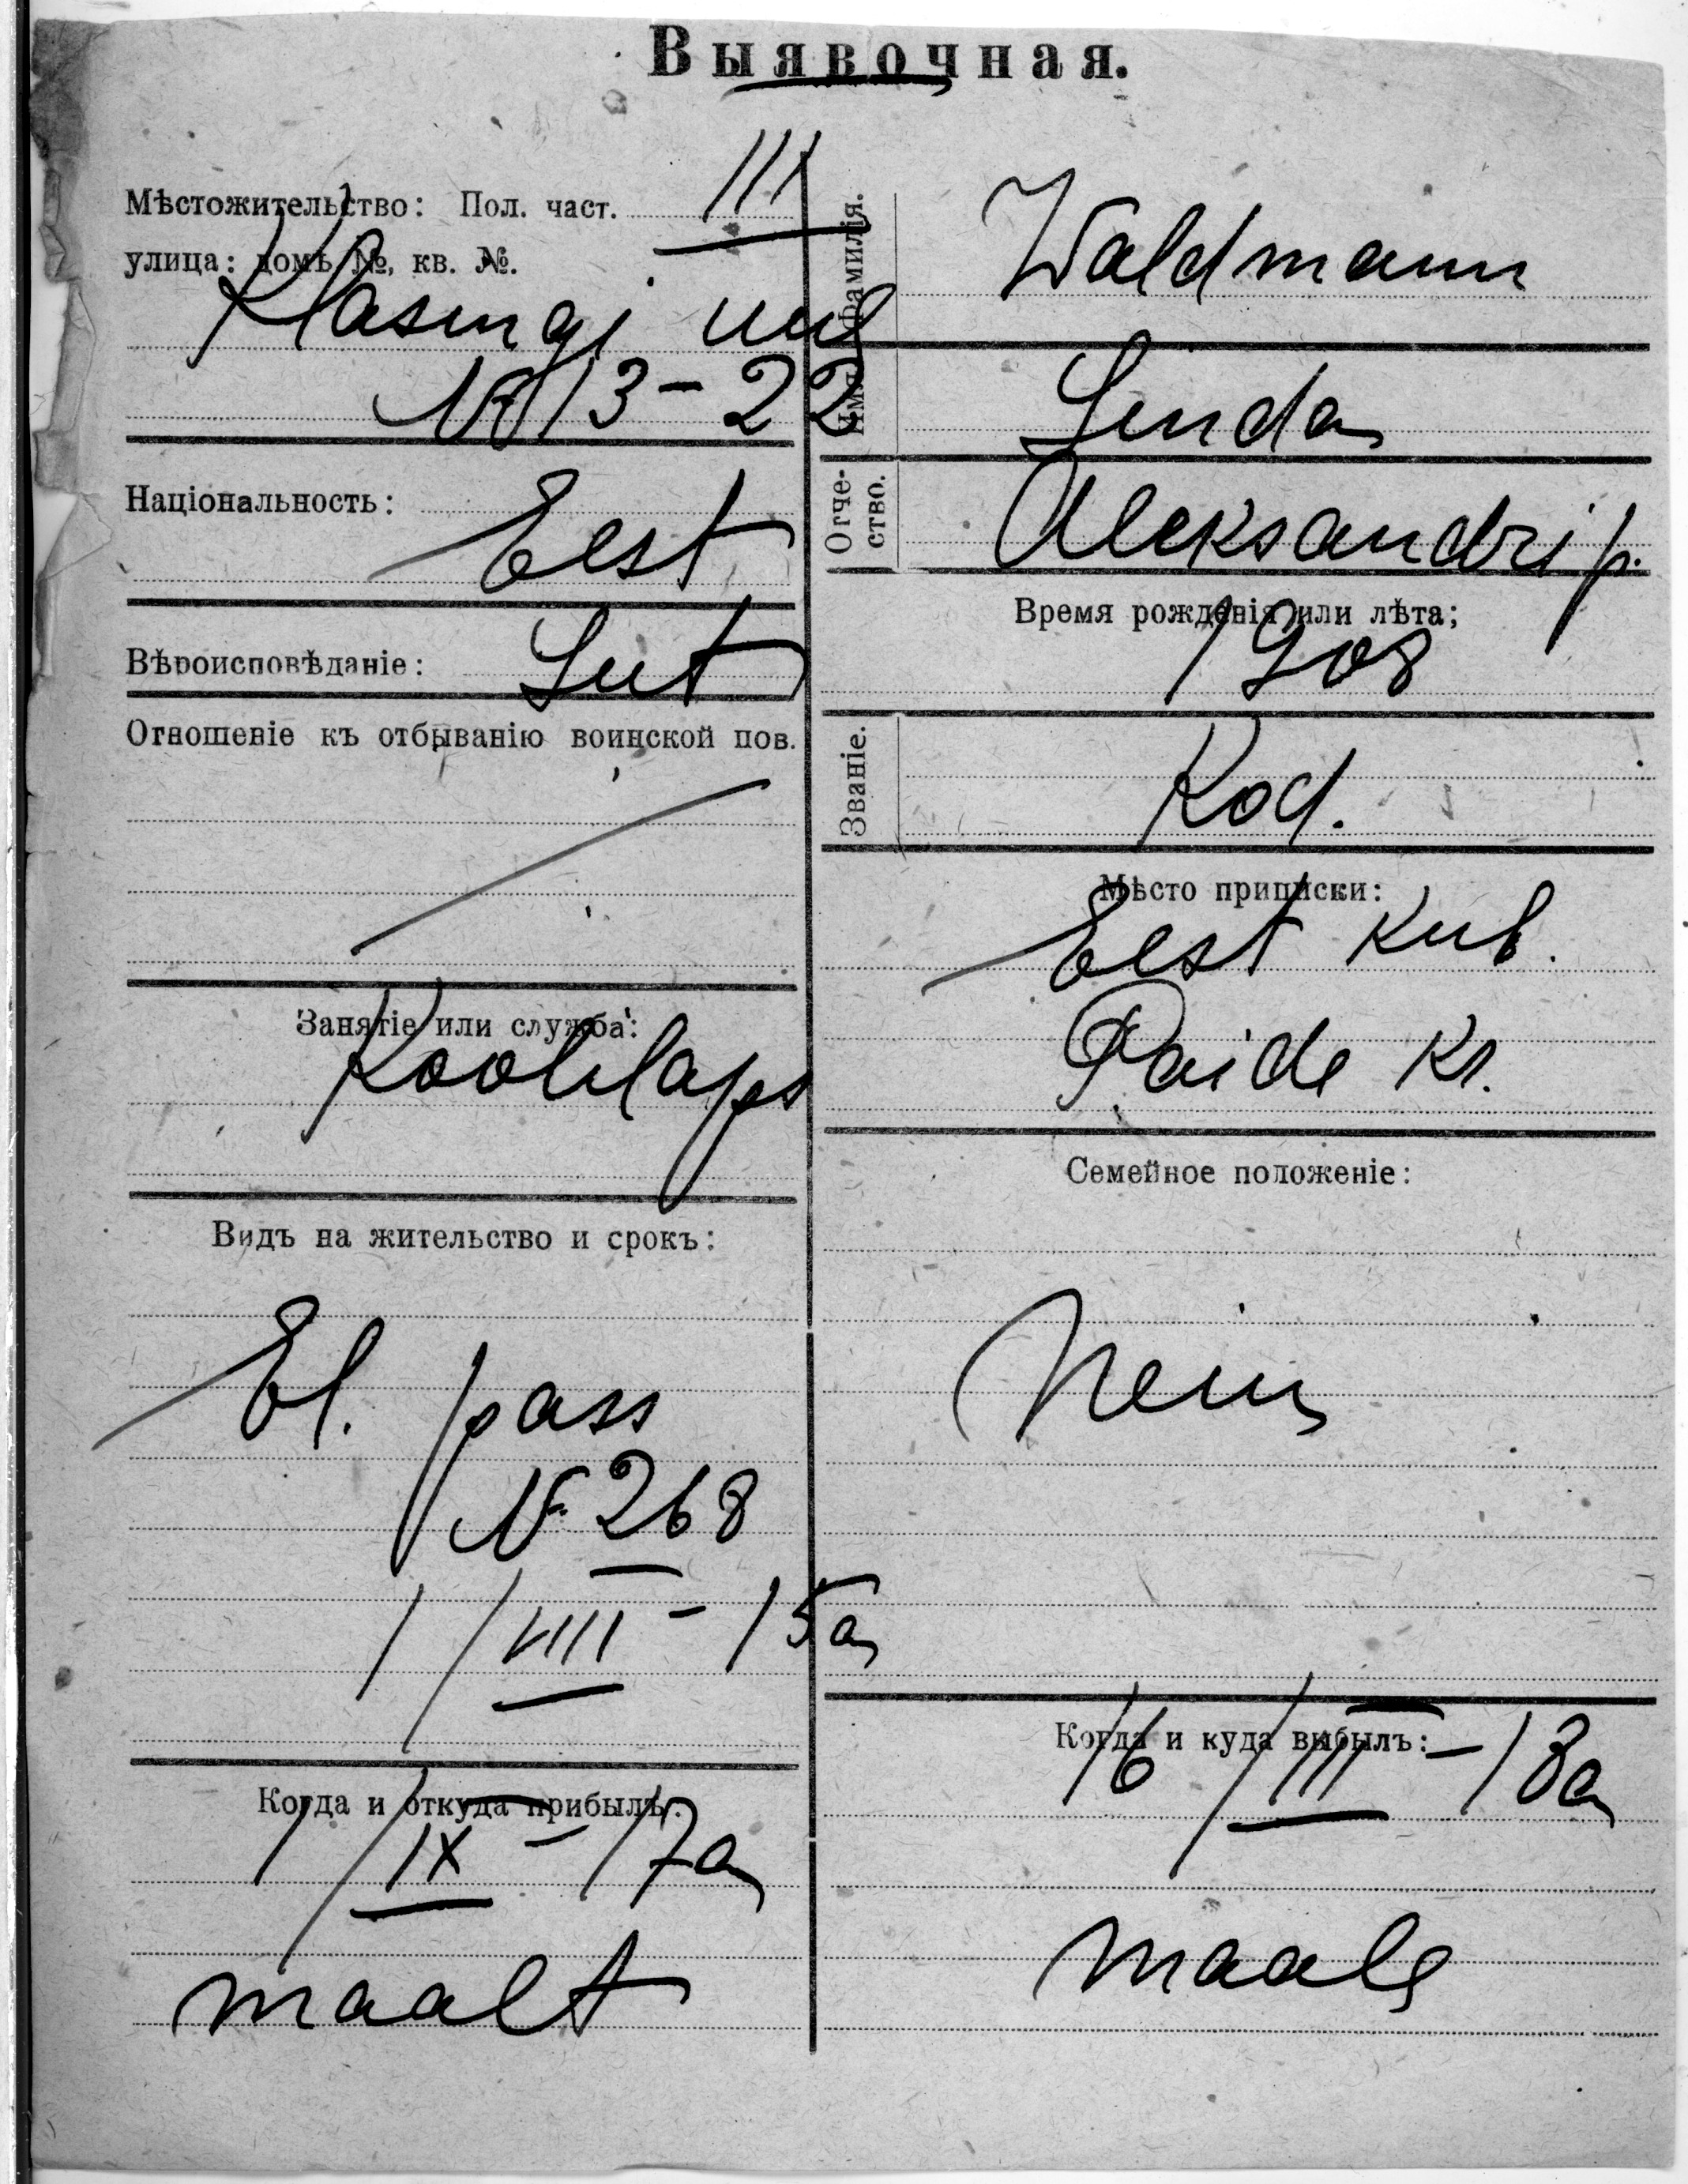 Выявочная.
Мѣстожительство: Пол. част. III
улица: домъ №, кв. №.
Klasingi uul
№ 13-22
Національность:
Eest
Вѣроисповѣданіе: Lut
Отношеніе къ отбыванію воинской пов.
Занятіе или служба:
Koolilaps
Видъ на жительство и срокъ:
El. pass
№ 268
1/VIII - 15a
Когда и откуда прибылъ:
1/IX - 17a
maalt
Фамилія.
Waldmann
Имя
Linda
Отче-
ство.
Aleksandri p.
Время рожденія или лѣта;
1908
Званіе.
Kod.
Мѣсто приписки:
Eest Kub.
Paide Kr.
Семейное положеніе:
Neiu
Когда и куда выбылъ:
16/III - 18a
maale